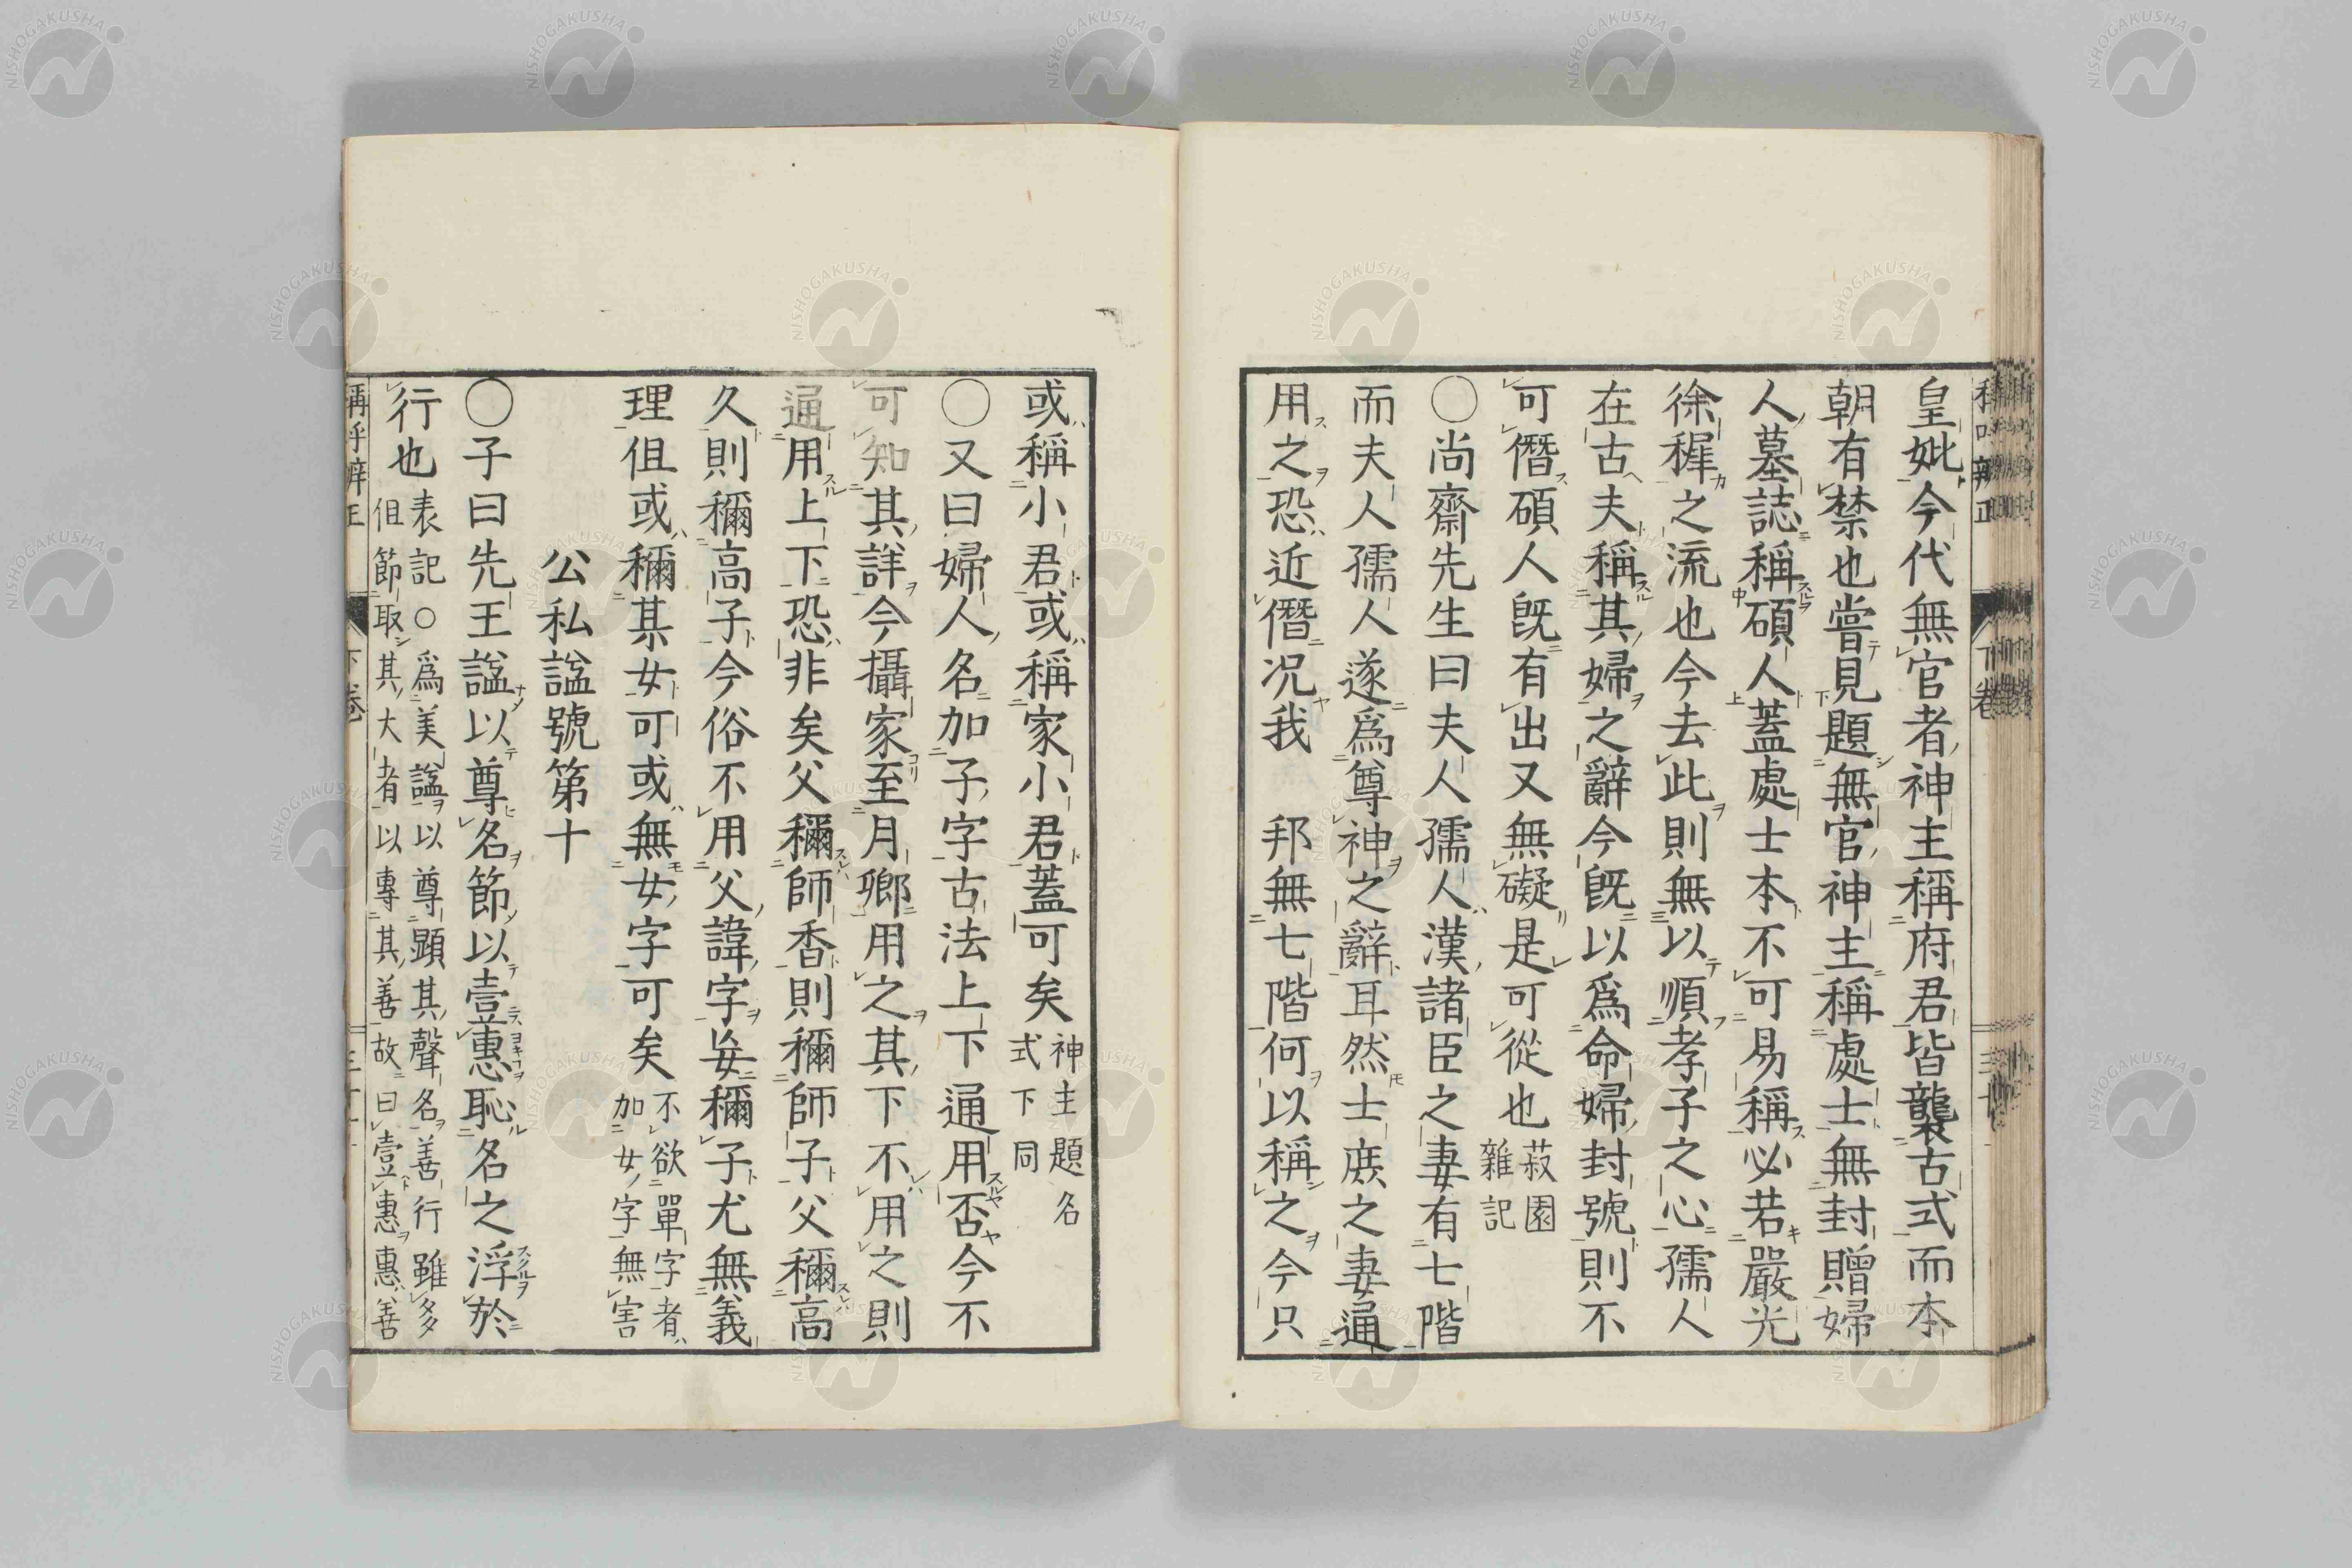 皇妣今代無官者神主稱府君皆襲古式而本
朝有禁也嘗見題無官神主稱處士無封贈婦
人墓誌稱碩人蓋處士本不可易稱必若嚴光
徐穉之流也今去此則無以順孝子之心孺人
在古夫稱其婦之辭今既以爲命婦封號則不
可僭碩人既有出又無礙是可從也 菽園
雜記
〇尚齋先生曰夫人孺人漢諸臣之妻有七階
而夫人孺人遂爲尊神之辭耳然士庶之妻通
用之恐近僭况我 邦無七階何以稱之今只
或稱小君或稱家小君蓋可矣 神主題名
式下同
〇又曰婦人名加子字古法上下通用否今不
可知其詳今攝家至月卿用之其下不用之則
通用上下恐非矣父稱師香則稱師子父稱高
久則稱高子今俗不用父諱字妄稱子尤無義
理但或稱某女可或無女字可矣 不欲單字者
加女字無害
公私謚號第十
〇子曰先王謚以尊名節以壹惠恥名之浮於
行也 表記〇爲美謚以尊顯其聲名善行雖多
但節取其大者以專其善故曰壹惠惠善
稱呼辨正 下卷
NISHOGAKUSHA